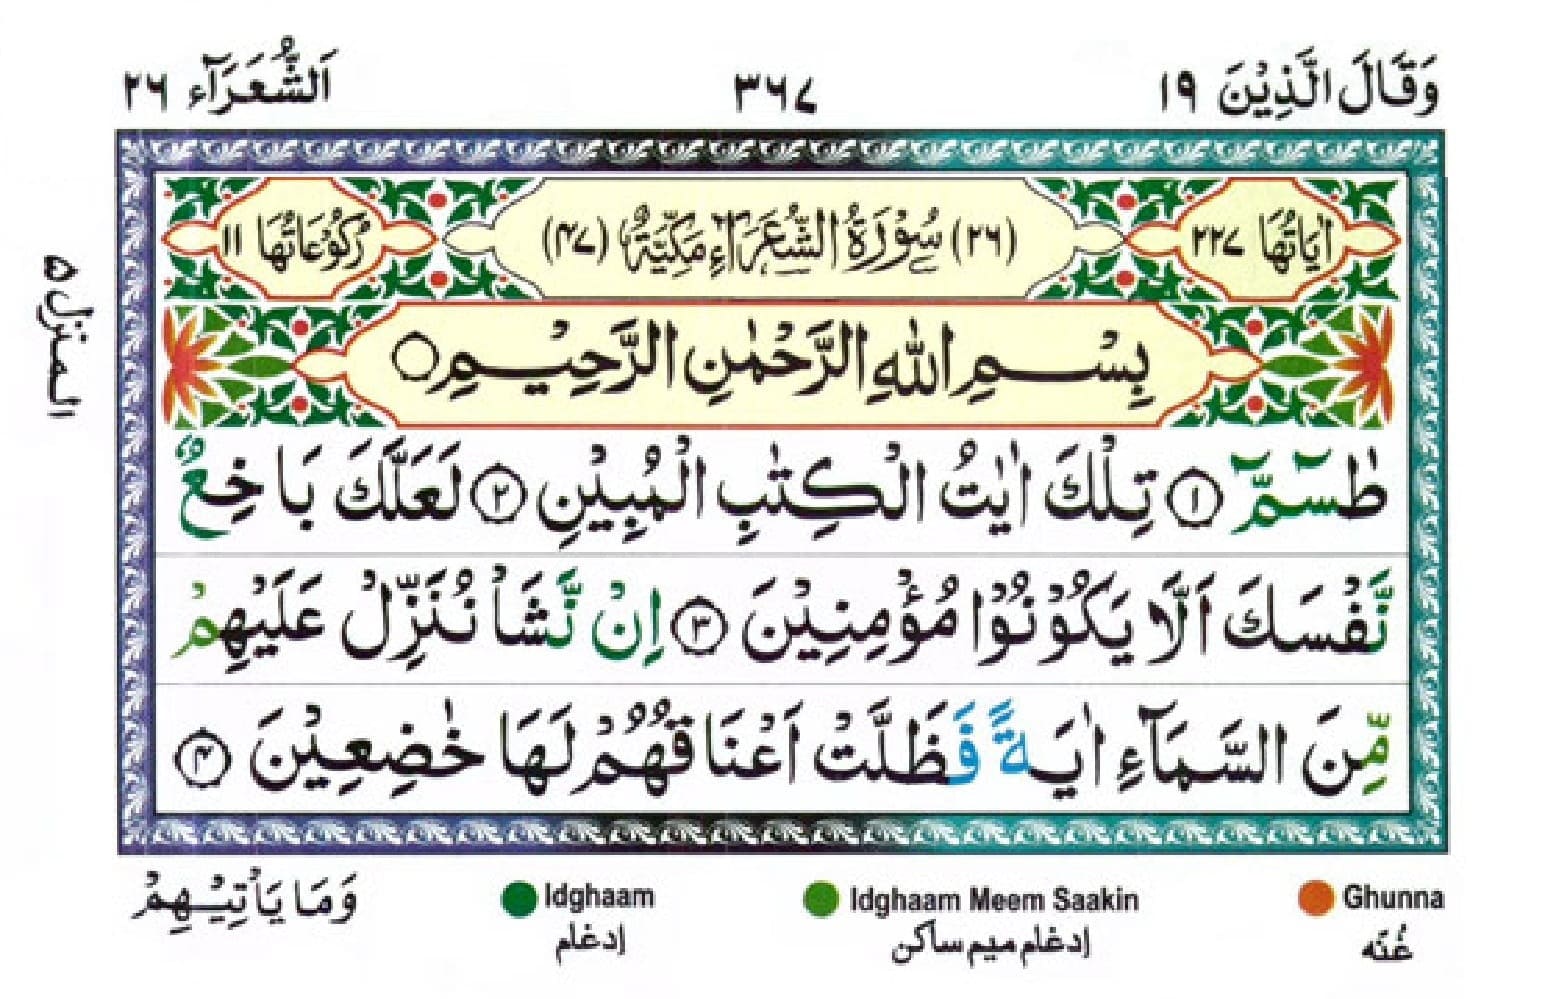 وَقَالَ الَّذِيْنَ ١٩
٣٦٧
اَلشُّعَرَآء ٢٦
اٰيَاتُهَا ٢٢٧
(٢٦) سُوْرَةُ الشُّعَرَآءِ مَكِّيَّةٌ (٤٧)
رُكُوْعَاتُهَا ١١
بِسْمِ اللّٰهِ الرَّحْمٰنِ الرَّحِيْمِ
طٰسٓمّٓ ١ تِلْكَ اٰيٰتُ الْكِتٰبِ الْمُبِيْنِ ٢ لَعَلَّكَ بَاخِعٌ
نَّفْسَكَ اَلَّا يَكُوْنُوْا مُؤْمِنِيْنَ ٣ اِنْ نَّشَاْ نُنَزِّلْ عَلَيْهِمْ
مِّنَ السَّمَآءِ اٰيَةً فَظَلَّتْ اَعْنَاقُهُمْ لَهَا خٰضِعِيْنَ ٤
المنزل ٥
وَمَا يَاْتِيْهِمْ
Idghaam
ادغام
Idghaam Meem Saakin
ادغام میم ساکن
Ghunna
غُنّه